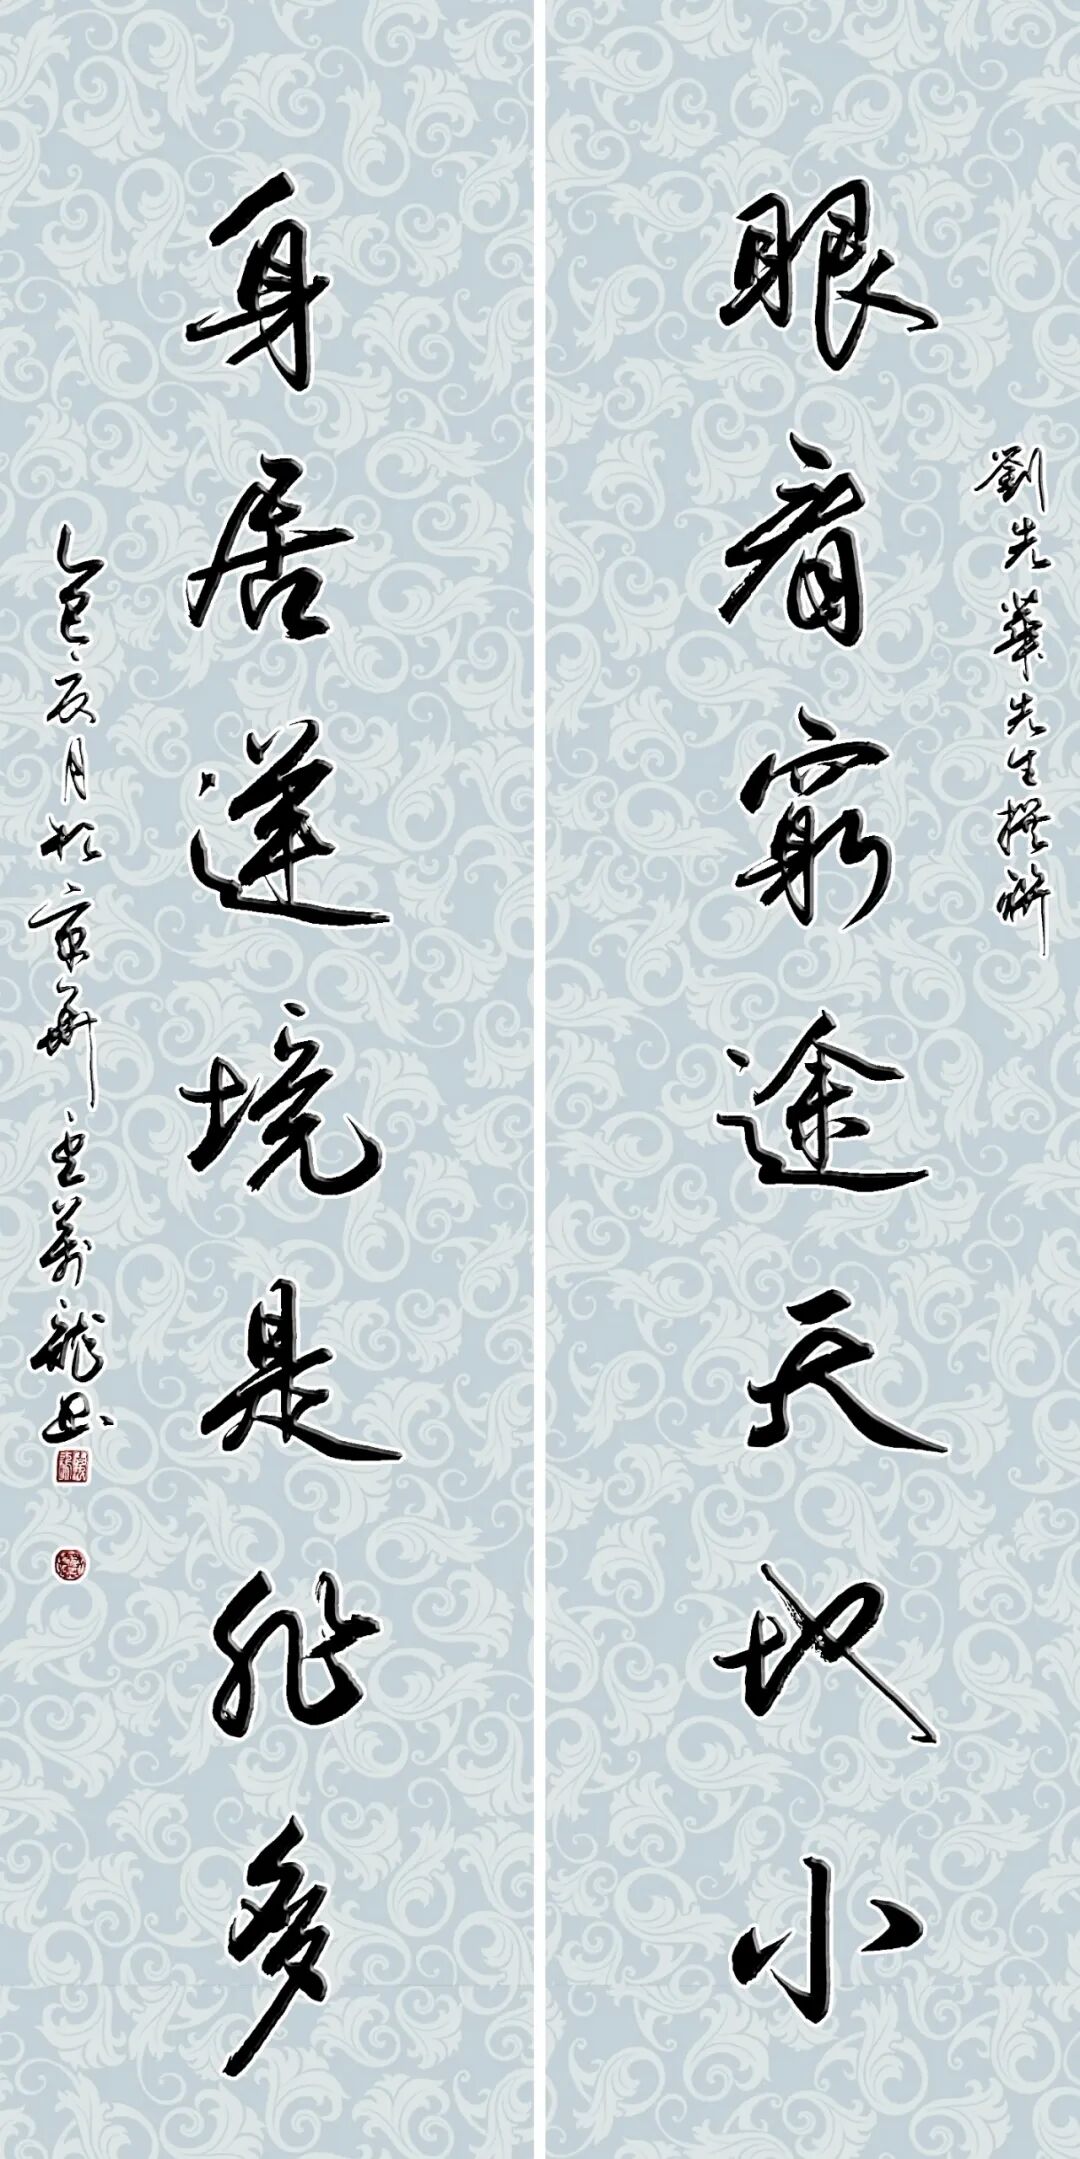 劉先華先生撰聯
眼看窮途天地小
身居達境是非多
乙巳辰月於京華 萬龍書